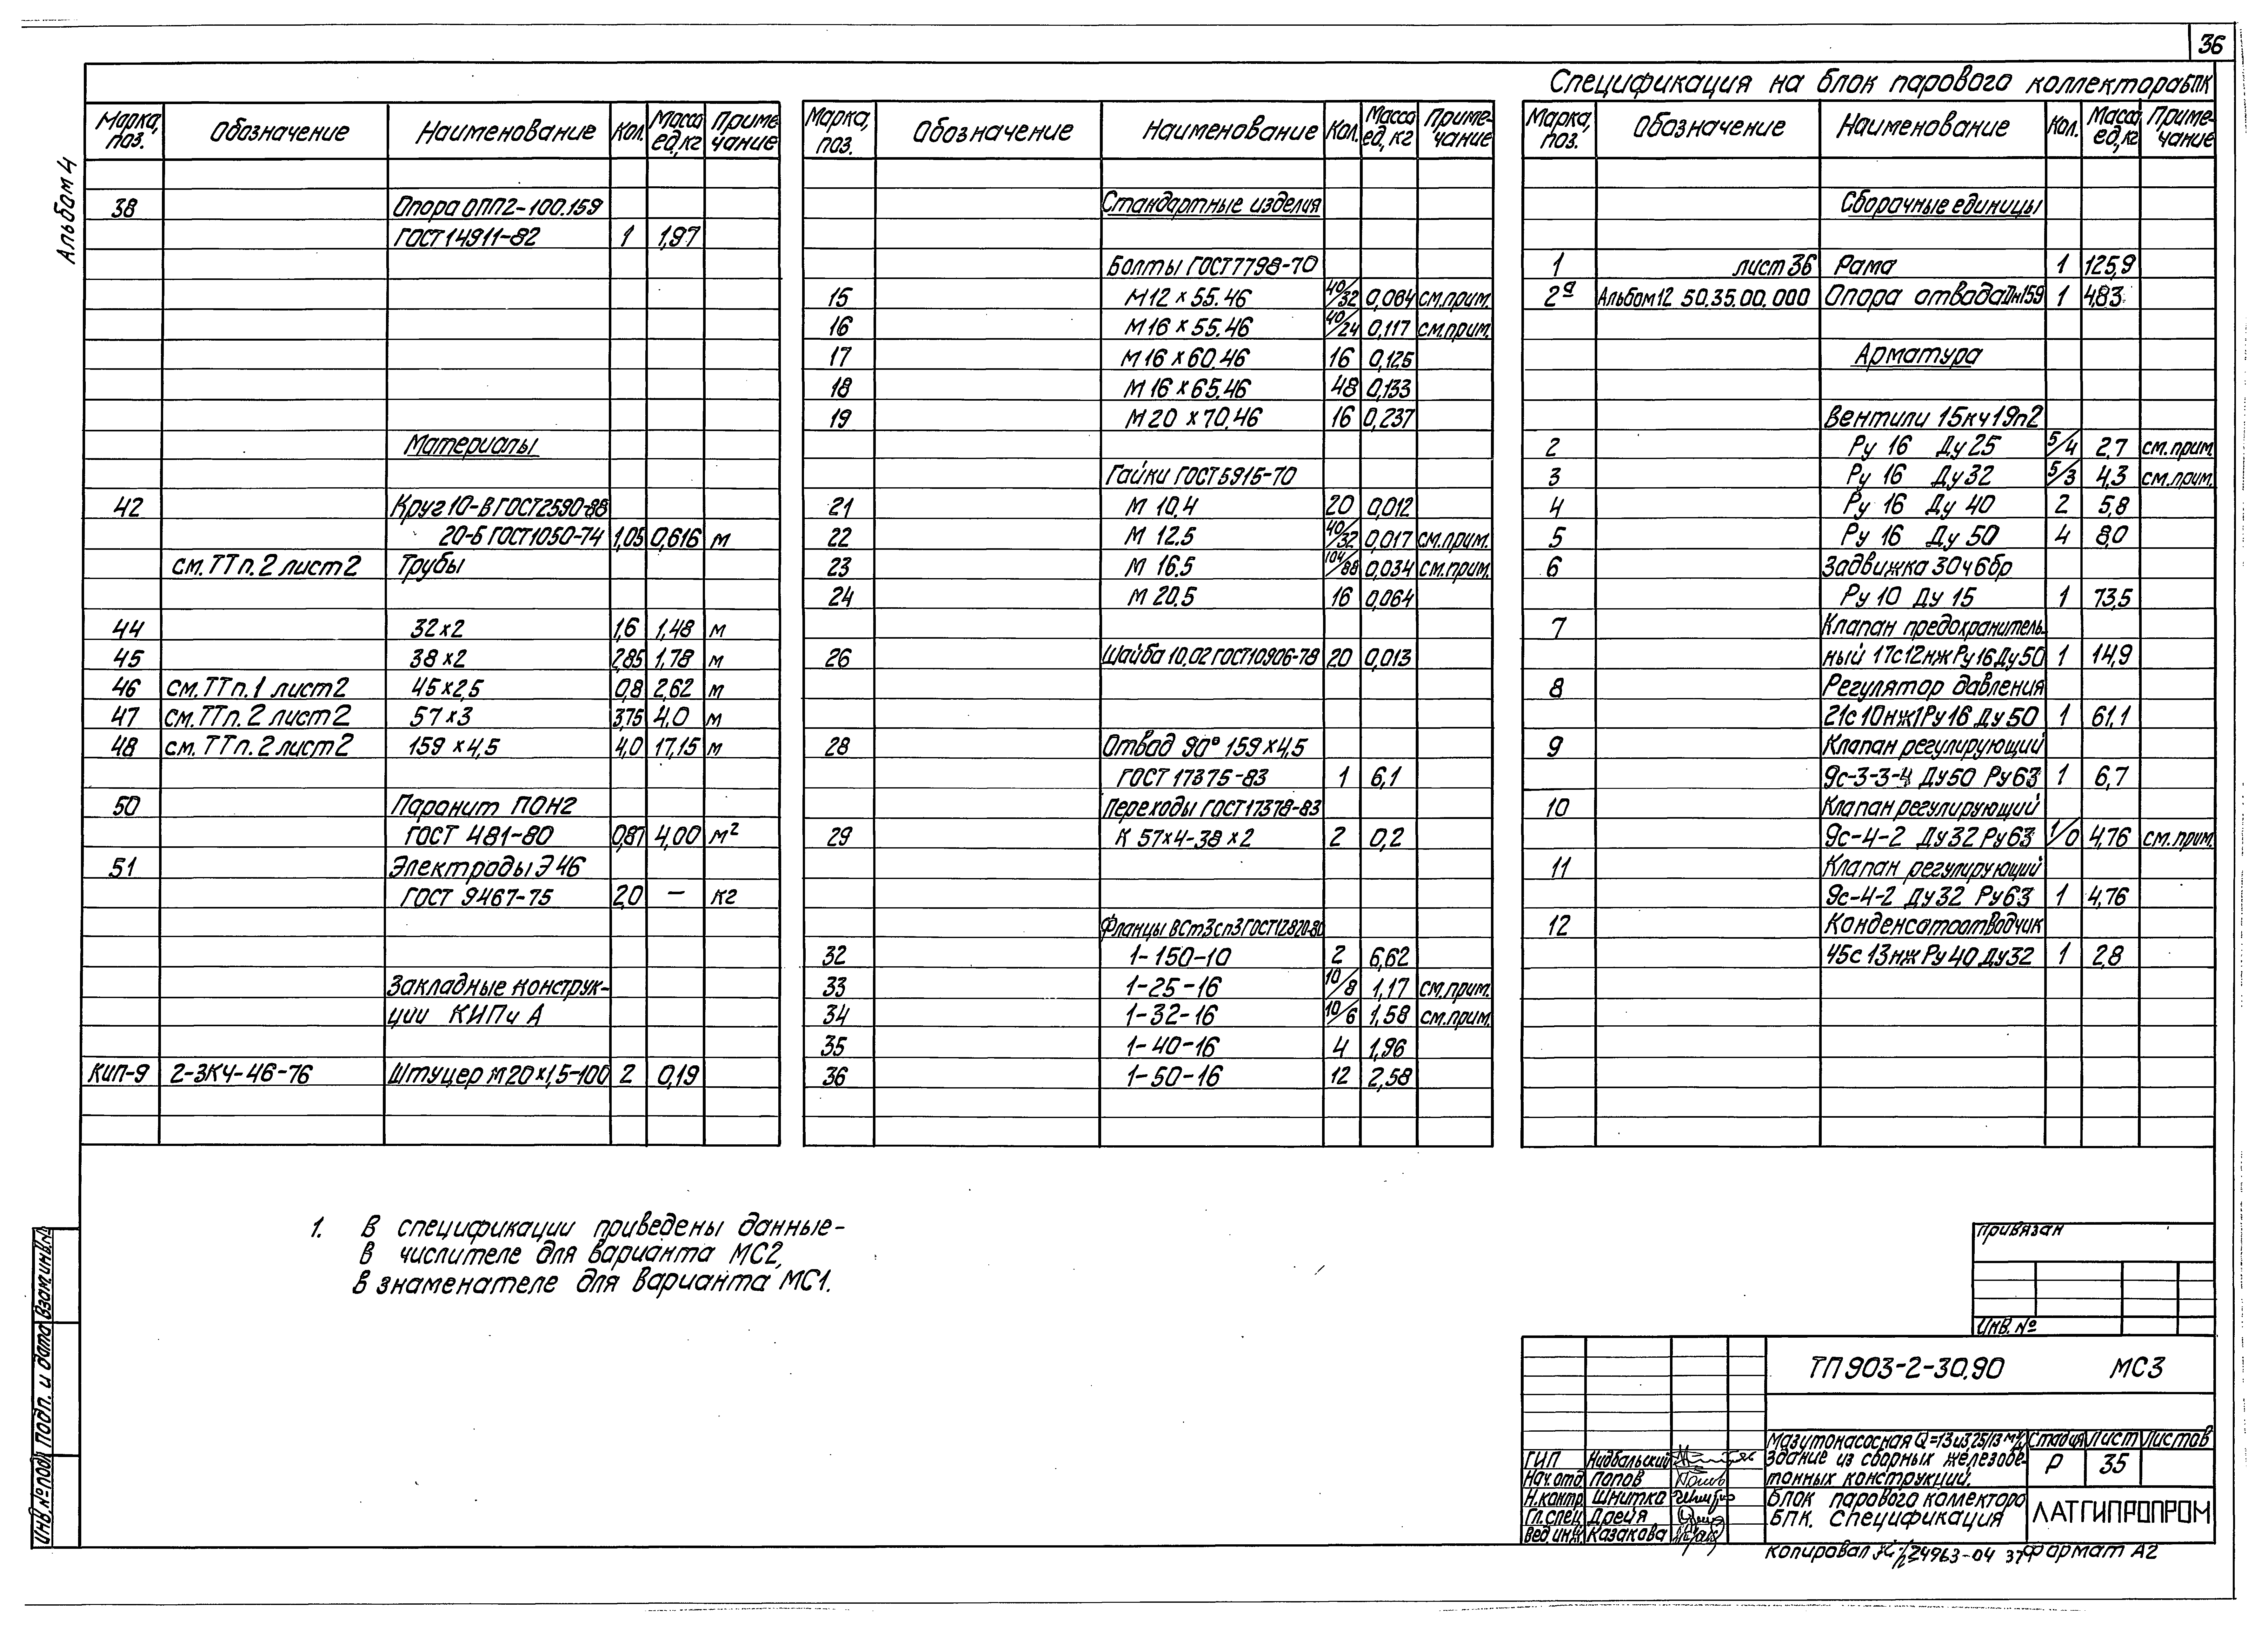 36
Альбом 4
Спецификация на блок парового коллектора БПК
Марка, поз. Обозначение Наименование Кол. Масса ед, кг Приме-чание
38 Опора ОПП2-100.159
ГОСТ 14911-82 1 1,97
Материалы
42 Круг 10-В ГОСТ 2590-88
20-Б ГОСТ 1050-74 1,05 0,616 м
см. ТТ п. 2 лист 2 Трубы
44 32х2 1,6 1,48 м
45 38х2 2,85 1,78 м
46 см. ТТ п. 1 лист 2 45х2,5 0,8 2,62 м
47 см. ТТ п. 2 лист 2 57х3 3,75 4,0 м
48 см. ТТ п. 2 лист 2 159х4,5 4,0 17,15 м
50 Паранит ПОН2
ГОСТ 481-80 0,87 4,00 м²
51 Электроды Э46
ГОСТ 9467-75 2,0 — кг
Закладные конструк-
ции КИП и А
КИП-9 2-ЗКЧ-46-76 Штуцер М20х1,5-100 2 0,19
Марка, поз. Обозначение Наименование Кол. Масса ед, кг Приме-чание
Стандартные изделия
Болты ГОСТ 7798-70
15 М12 х 55.46 40/32 0,064 см. прим.
16 М16 х 55.46 40/24 0,117 см. прим.
17 М16 х 60.46 16 0,125
18 М16 х 65.46 48 0,133
19 М20 х 70.46 16 0,237
Гайки ГОСТ 5915-70
21 М 10.4 20 0,012
22 М 12.5 40/32 0,017 см. прим.
23 М 16.5 104/88 0,034 см. прим.
24 М 20.5 16 0,064
26 Шайба 10.02 ГОСТ 10906-78 20 0,013
28 Отвод 90° 159х4,5
ГОСТ 17375-83 1 6,1
Переходы ГОСТ 17378-83
29 К 57х4-38х2 2 0,2
Фланцы ВСт3сп3 ГОСТ 12820-80
32 1-150-10 2 6,62
33 1-25-16 10/8 1,17 см. прим.
34 1-32-16 10/6 1,58 см. прим.
35 1-40-16 4 1,96
36 1-50-16 12 2,58
Марка, поз. Обозначение Наименование Кол. Масса ед, кг Приме-чание
Сборочные единицы
1 лист 36 Рама 1 125,9
2а Альбом 12 50.35.00.000 Опора отвада Дн159 1 4,83
Арматура
Вентили 15кч19п2
2 Ру 16 Ду 25 5/4 2,7 см. прим
3 Ру 16 Ду 32 5/3 4,3 см. прим.
4 Ру 16 Ду 40 2 5,8
5 Ру 16 Ду 50 4 8,0
6 Задвижка 30ч6бр
Ру 10 Ду 15 1 73,5
7 Клапан предохранитель-
ный 17с12нж Ру16 Ду50 1 14,9
8 Регулятор давления
21с10нж1 Ру16 Ду50 1 61,1
9 Клапан регулирующий
9с-3-3-4 Ду50 Ру63 1 6,7
10 Клапан регулирующий
9с-4-2 Ду32 Ру63 1/0 4,76 см. прим.
11 Клапан регулирующий
9с-4-2 Ду32 Ру63 1 4,76
12 Конденсатоотводчик
45с13нж Ру40 Ду32 1 2,8
1. В спецификации приведены данные-
в числителе для варианта МС2,
в знаменателе для варианта МС1.
Привязан
Инв. №
ТП 903-2-30.90 МС3
Мазутонасосная Q=13 и 3,25/13 м³/ч
Здание из сборных железобе-
тонных конструкций.
Стадия Лист Листов
Р 35
Блок парового коллектора
БПК. Спецификация
ЛАТГИПРОПРОМ
ГИП Нидбальский
Нач. отд Попов
Н. контр. Шнитка
Гл. спец. Дрейя
Вед. инж. Казакова
Инв. № подл Подп. и дата Взам. инв. №
Копировал 24963-04 37 Формат А2